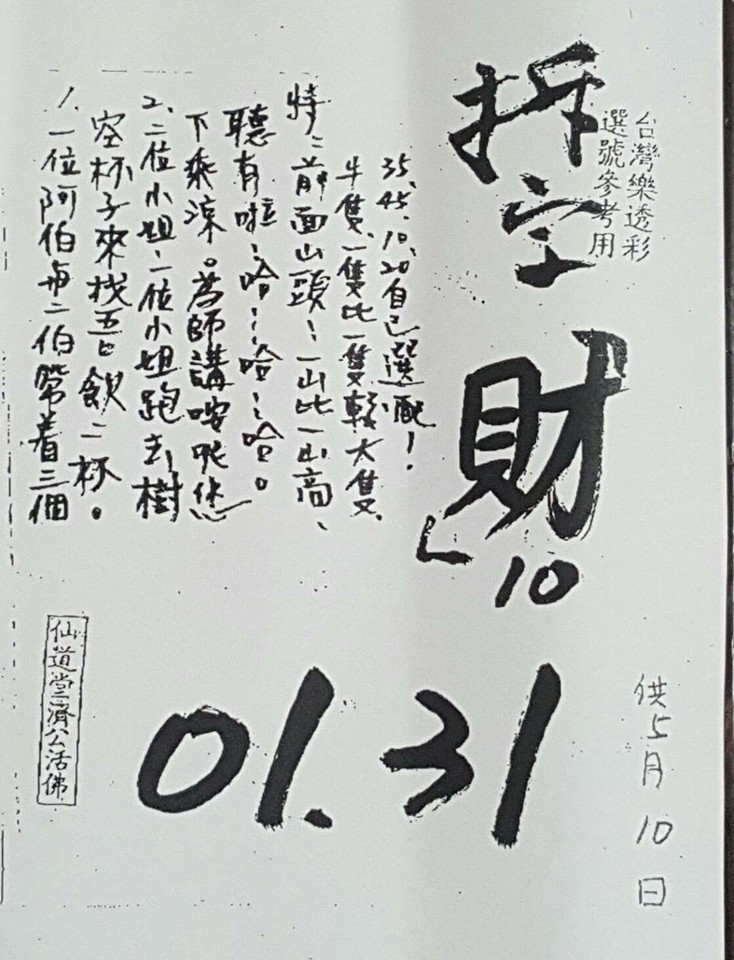 台灣樂透彩
選號參考用
拆字
財」10
01.31
供5月10日
1、一位阿伯与二伯帶着三個
空杯子來找吾飲二杯。
2、二位小姐、一位小姐跑去樹
下乘涼。為師講咹呢恁
聽有啦、哈、、哈、、哈。
特:前面山頭、、一山比一山高、
牛隻、一隻比一隻較大隻、
35.45.10.20自己選配!
仙道堂濟公活佛